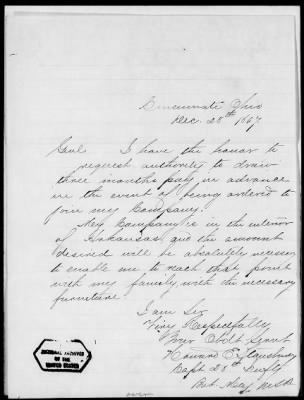 Cincinnati Ohio
Dec. 28th 1867
Genl. I have the honor to
request authority to draw
three months pay in advance
in the event of being ordered to
join my Company.
My Company is in the interior
of Arkansas and the amount
desired will be absolutely necessary
to enable me to reach that point
with my family, with the necessary
furniture.
I am Sir
Very Respectfully
Your Obdt. Servt
Howard E. Stansbury
Capt 28th Infty
Bvt. Maj. USA
NATIONAL ARCHIVES
OF THE
UNITED STATES
over